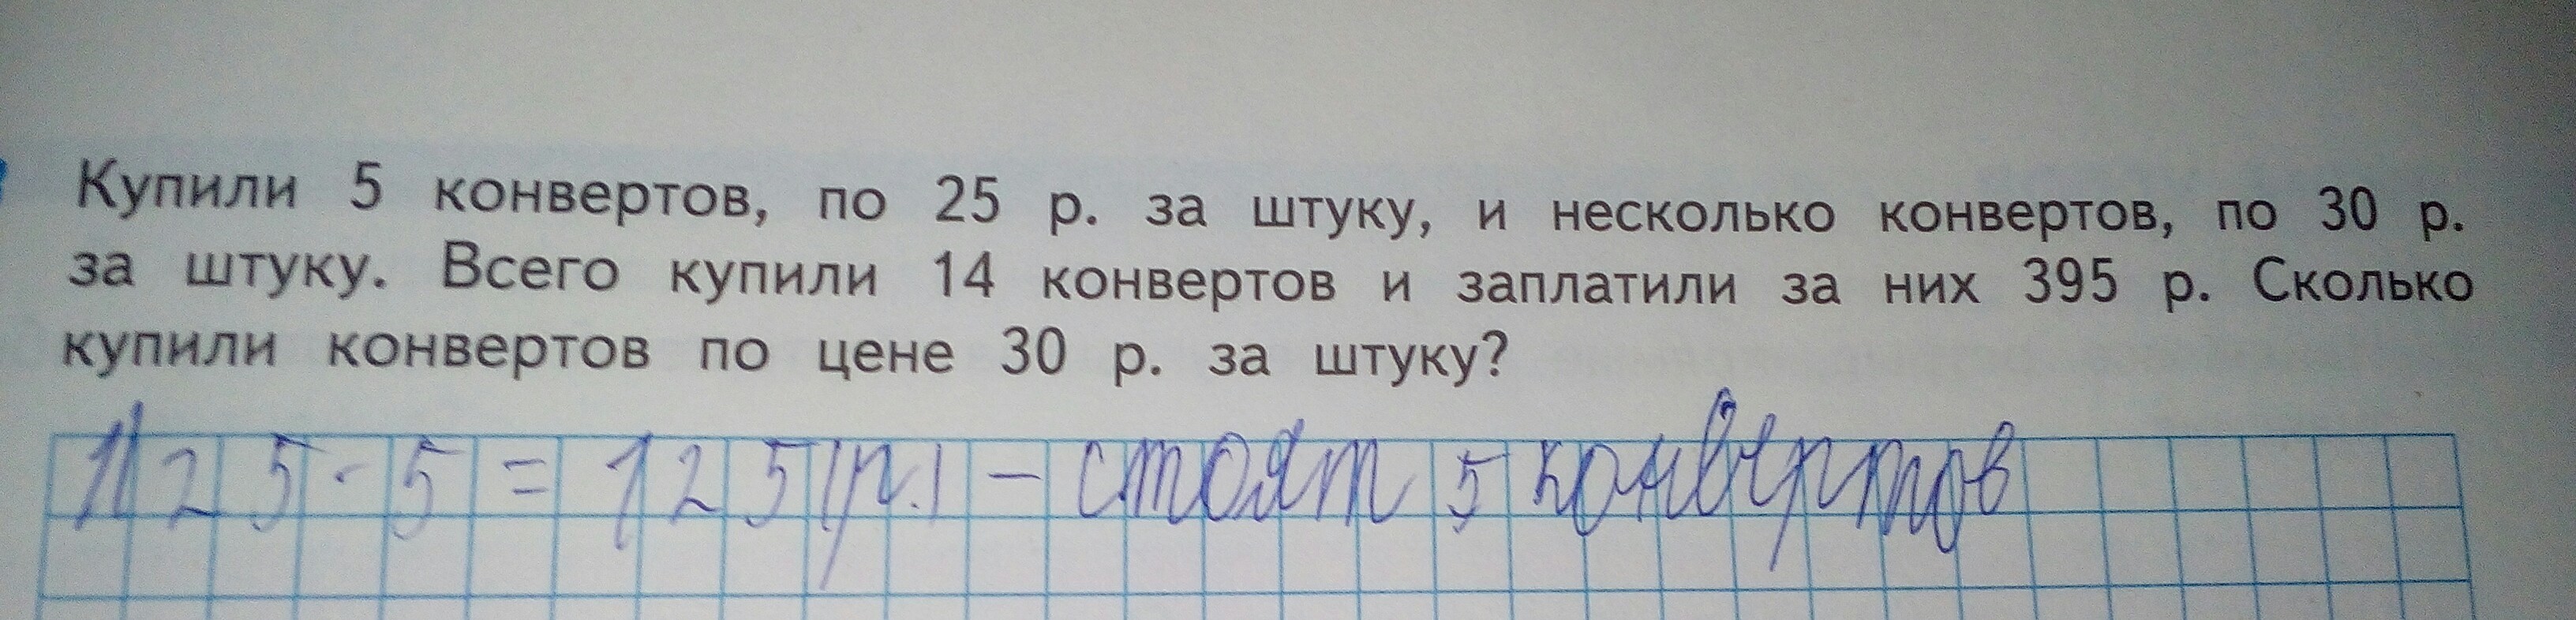 Купили 5 конвертов, по 25 р. за штуку, и несколько конвертов, по 30 р.
за штуку. Всего купили 14 конвертов и заплатили за них 395 р. Сколько
купили конвертов по цене 30 р. за штуку?
1) 25 · 5 = 125 (р.) – стоят 5 конвертов